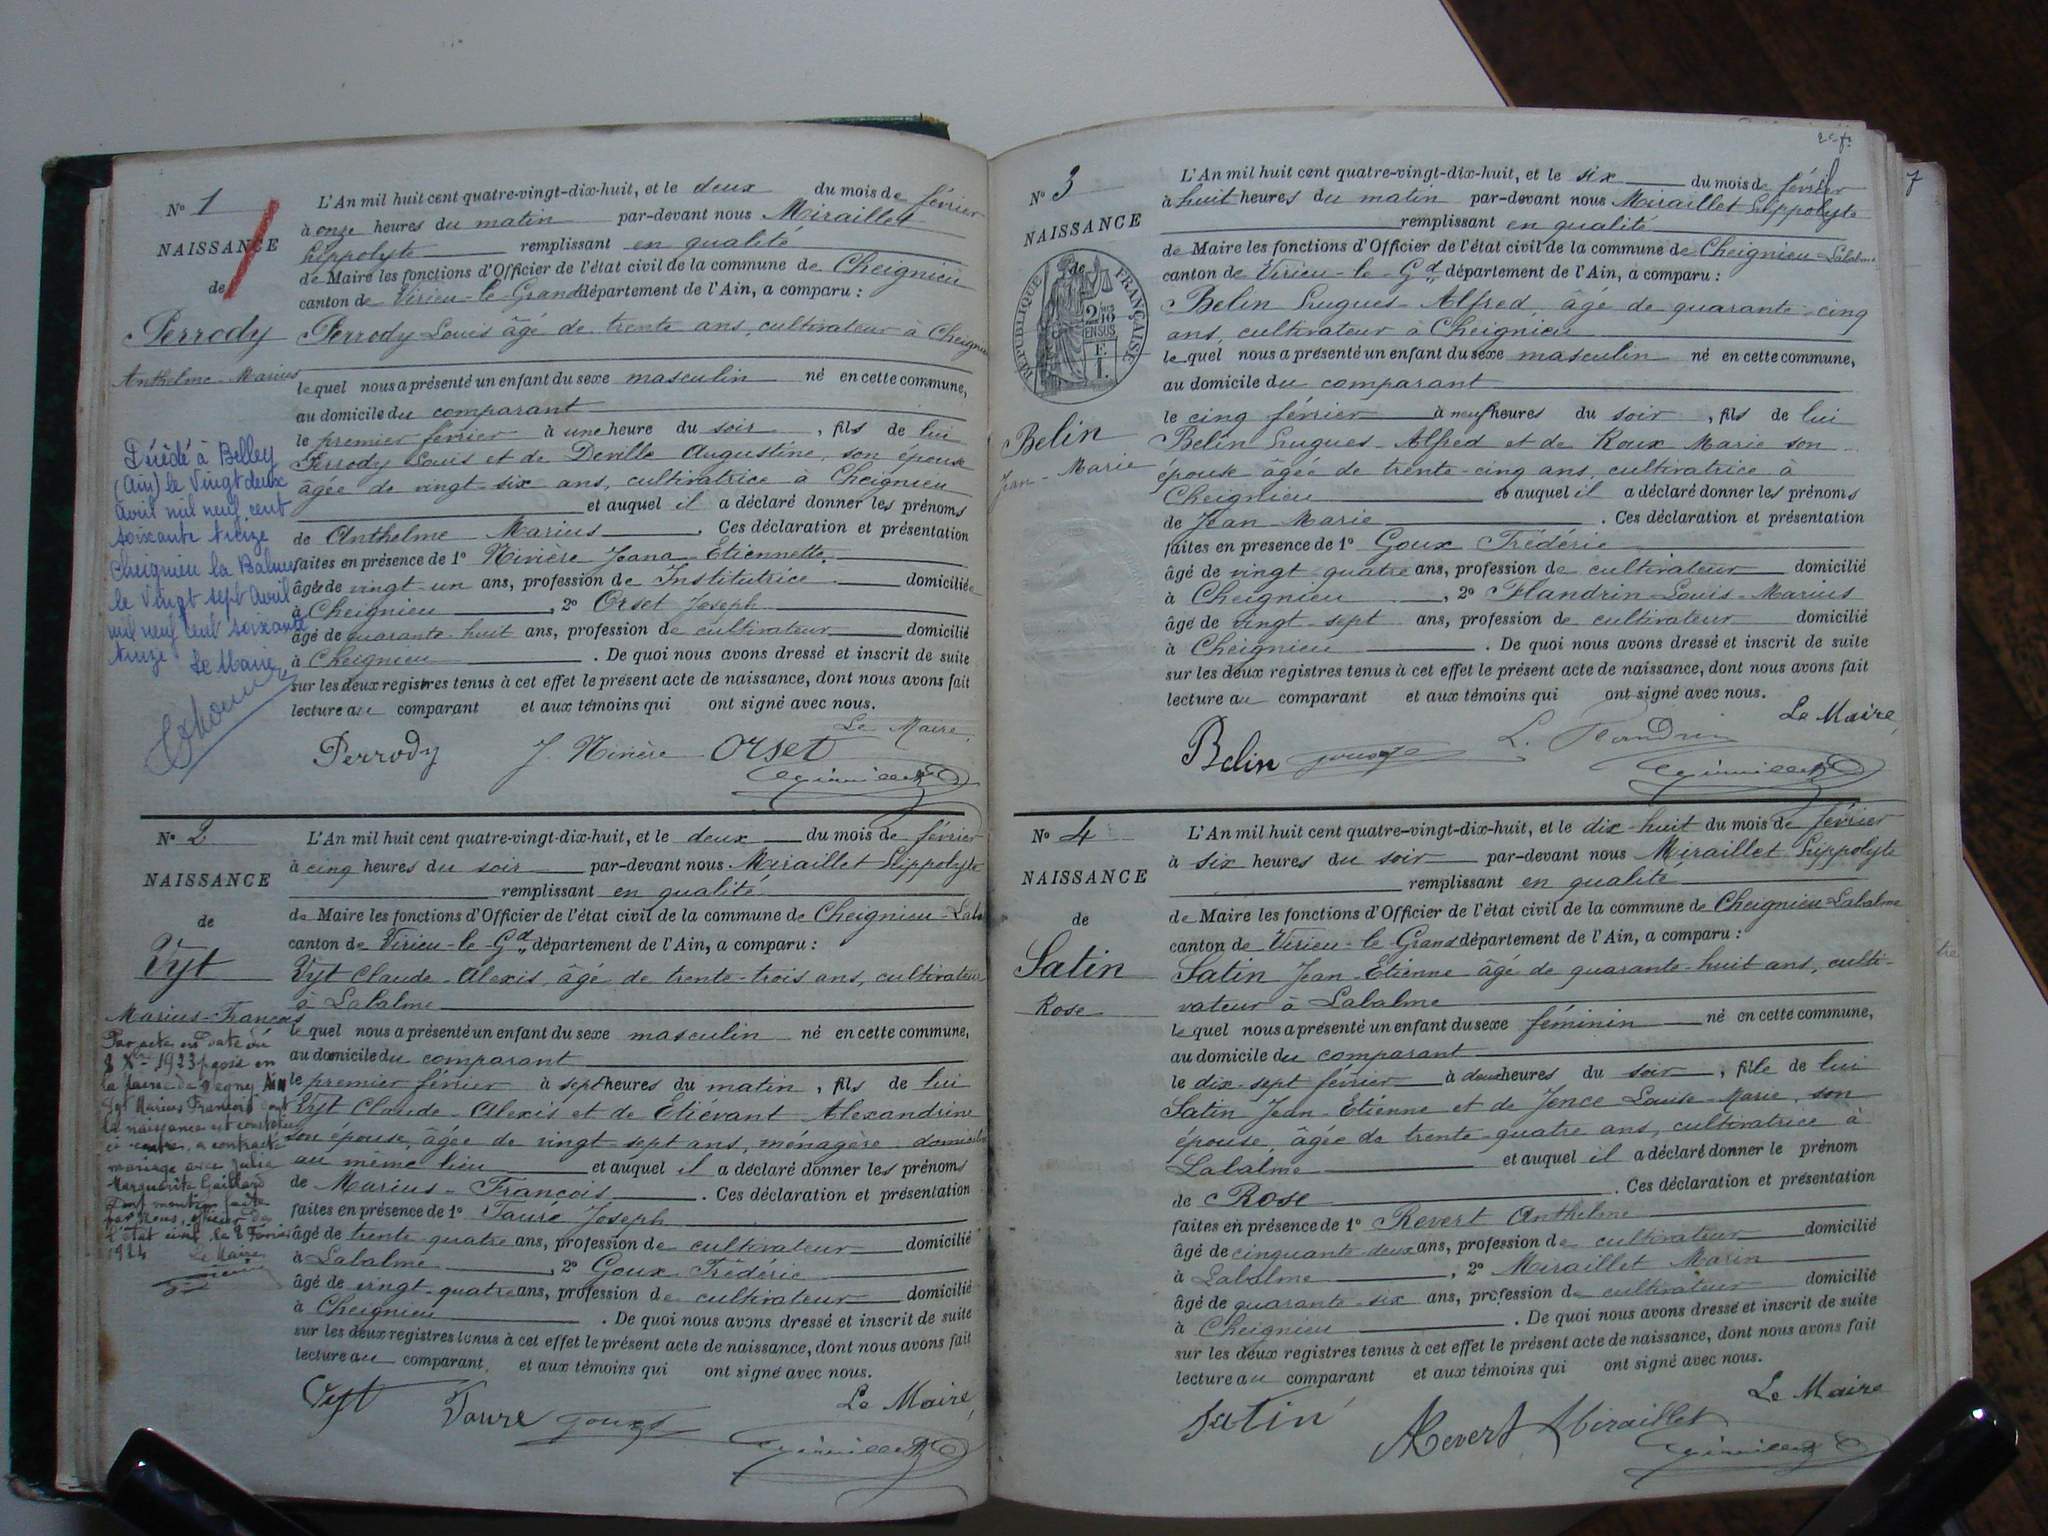 N° 1
NAISSANCE
de
Perrody
Anthelme-Marius
Décédé à Belley
(Ain) le Vingt deux
Avril mil neuf cent
soixante treize
Cheignieu la Balme
le Vingt sept Avril
mil neuf cent soixante
treize
Le Maire
L'An mil huit cent quatre-vingt-dix-huit, et le deux du mois de février
à onze heures du matin par-devant nous Miraillet
hippolyte remplissant en qualité
de Maire les fonctions d'Officier de l'état civil de la commune de Cheignieu
canton de Virieu-le-Grand département de l'Ain, a comparu :
Perrody Louis âgé de trente ans, cultivateur à Cheignieu
le quel nous a présenté un enfant du sexe masculin né en cette commune,
au domicile du comparant
le premier février à une heure du soir, fils de lui
Perrody Louis et de Deville Augustine, son épouse
âgée de vingt-six ans, cultivatrice à Cheignieu
et auquel il a déclaré donner les prénoms
de Anthelme Marius. Ces déclaration et présentation
faites en présence de 1° Nivière Jeana-Etiennette,
âgée de vingt-un ans, profession de Institutrice domiciliée
à Cheignieu, 2° Orset Joseph
âgé de quarante-huit ans, profession de cultivateur domicilié
à Cheignieu. De quoi nous avons dressé et inscrit de suite
sur les deux registres tenus à cet effet le présent acte de naissance, dont nous avons fait
lecture au comparant et aux témoins qui ont signé avec nous.
Le Maire,
Perrody J. Nivière Orset
N° 2
NAISSANCE
de
Vyt
Marius-François
Par acte en date du
8 Xbre 1923 passé en
la Mairie de Peyrieu Ain
Vyt Marius François dont
la naissance est constatée
ci-contre, a contracté
mariage avec Julie
Marguerite Gaillard
Dont mention faite
par Nous, officier de
l'état civil le 8 Février
1924
Le Maire
L'An mil huit cent quatre-vingt-dix-huit, et le deux du mois de février
à cinq heures du soir par-devant nous Miraillet hippolyte
remplissant en qualité
de Maire les fonctions d'Officier de l'état civil de la commune de Cheignieu-Lab
canton de Virieu-le-Gd département de l'Ain, a comparu :
Vyt Claude-Alexis, âgé de trente-trois ans, cultivateur
à Labalme
le quel nous a présenté un enfant du sexe masculin né en cette commune,
au domicile du comparant
le premier février à sept heures du matin, fils de lui
Vyt Claude-Alexis et de Etiévant Alexandrine
son épouse, âgée de vingt-sept ans, ménagère domiciliée
au même lieu et auquel il a déclaré donner les prénoms
de Marius-François. Ces déclaration et présentation
faites en présence de 1° Fauré Joseph
âgé de trente-quatre ans, profession de cultivateur domicilié
à Labalme, 2° Goux Frédéric
âgé de vingt-quatre ans, profession de cultivateur domicilié
à Cheignieu. De quoi nous avons dressé et inscrit de suite
sur les deux registres tenus à cet effet le présent acte de naissance, dont nous avons fait
lecture au comparant et aux témoins qui ont signé avec nous.
Vyt Le Maire,
Faure goux
2e f.
7
N° 3
NAISSANCE
de
RÉPUBLIQUE FRANÇAISE
2/10
EN SUS
Belin
Jean-Marie
L'An mil huit cent quatre-vingt-dix-huit, et le six du mois de février
à huit heures du matin par-devant nous Miraillet hippolyte
remplissant en qualité
de Maire les fonctions d'Officier de l'état civil de la commune de Cheignieu-Labalme
canton de Virieu-le-Gd département de l'Ain, a comparu :
Belin Hugues-Alfred, âgé de quarante-cinq
ans, cultivateur à Cheignieu
le quel nous a présenté un enfant du sexe masculin né en cette commune,
au domicile du comparant
le cinq février à neuf heures du soir, fils de lui
Belin Hugues-Alfred et de Roux Marie son
épouse âgée de trente-cinq ans, cultivatrice à
Cheignieu et auquel il a déclaré donner les prénoms
de Jean-Marie. Ces déclaration et présentation
faites en presence de 1° Goux Frédéric
âgé de vingt-quatre ans, profession de cultivateur domicilié
à Cheignieu, 2° Flandrin-Louis-Marius
âgé de vingt-sept ans, profession de cultivateur domicilié
à Cheignieu. De quoi nous avons dressé et inscrit de suite
sur les deux registres tenus à cet effet le présent acte de naissance, dont nous avons fait
lecture au comparant et aux témoins qui ont signé avec nous.
Le Maire,
Belin goux L. Flandrin
N° 4
NAISSANCE
de
Satin
Rose
L'An mil huit cent quatre-vingt-dix-huit, et le dix-huit du mois de février
à six heures du soir par-devant nous Miraillet hippolyte
remplissant en qualité
de Maire les fonctions d'Officier de l'état civil de la commune de Cheignieu-Labalme
canton de Virieu-le-Grand département de l'Ain, a comparu :
Satin Jean-Etienne âgé de quarante-huit ans, culti-
vateur à Labalme
le quel nous a présenté un enfant du sexe féminin né en cette commune,
au domicile du comparant
le dix-sept février à deux heures du soir, fille de lui
Satin Jean-Etienne et de Jence Louise-Marie, son
épouse, âgée de trente-quatre ans, cultivatrice à
Labalme et auquel il a déclaré donner le prénom
de Rose. Ces déclaration et présentation
faites en présence de 1° Revert Anthelme
âgé de cinquante-deux ans, profession de cultivateur domicilié
à Labalme, 2° Miraillet Marin
âgé de quarante-six ans, profession de cultivateur domicilié
à Cheignieu. De quoi nous avons dressé et inscrit de suite
sur les deux registres tenus à cet effet le présent acte de naissance, dont nous avons fait
lecture au comparant et aux témoins qui ont signé avec nous.
Le Maire
Satin Revert Miraillet